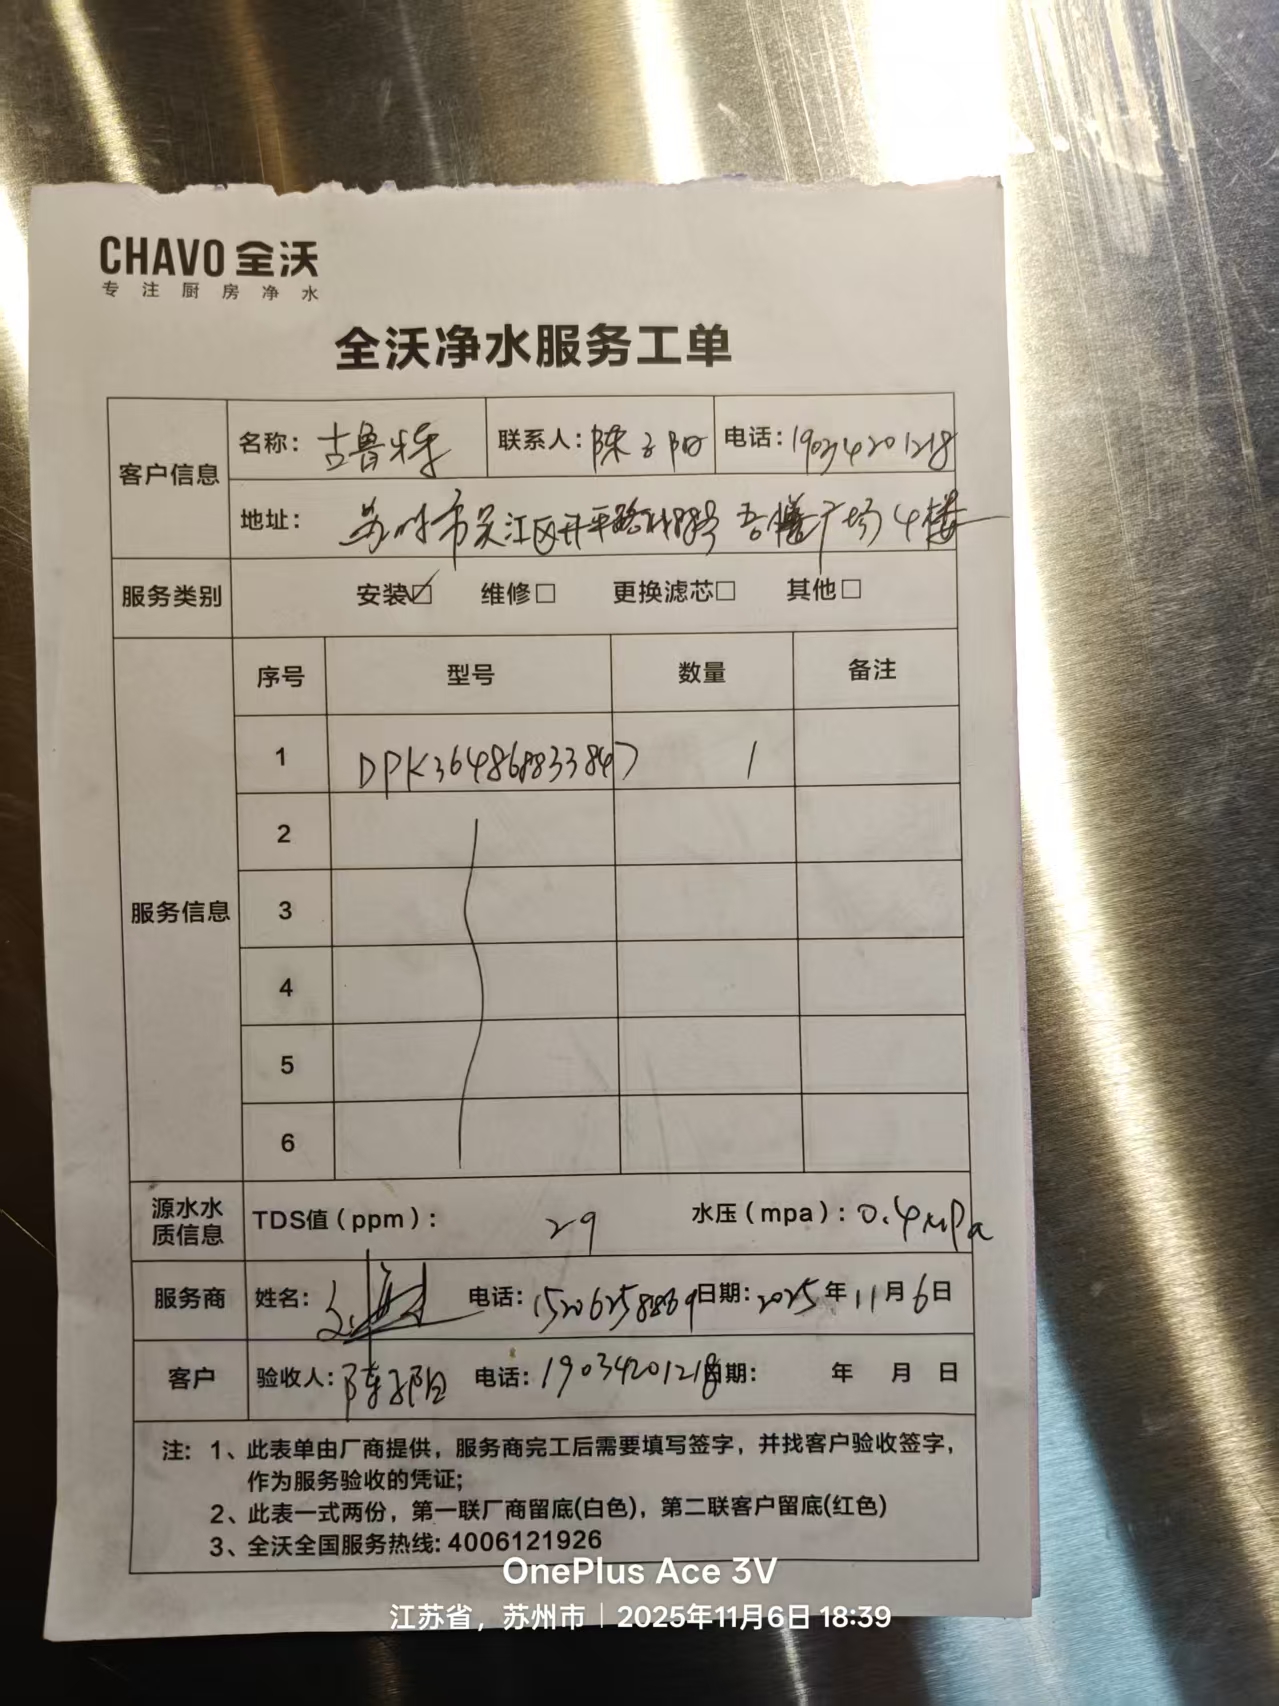 CHAVO 全沃
专注厨房净水
全沃净水服务工单
客户信息
名称： 古鲁特 联系人：陈子阳 电话：19034201218
地址： 苏州市吴江区开平路 号 吾悦广场4楼
服务类别 安装☑ 维修□ 更换滤芯□ 其他□
服务信息
序号 型号 数量 备注
1 DPK364868833847 1
2
3
4
5
6
源水水质信息 TDS值（ppm）： 29 水压（mpa）：0.4MPa
服务商 姓名： 电话：15206258869 日期：2025年11月6日
客户 验收人：陈子阳 电话：19034201218 日期： 年 月 日
注： 1、此表单由厂商提供，服务商完工后需要填写签字，并找客户验收签字，
作为服务验收的凭证；
2、此表一式两份，第一联厂商留底(白色)，第二联客户留底(红色)
3、全沃全国服务热线：4006121926
OnePlus Ace 3V
江苏省，苏州市｜2025年11月6日 18:39